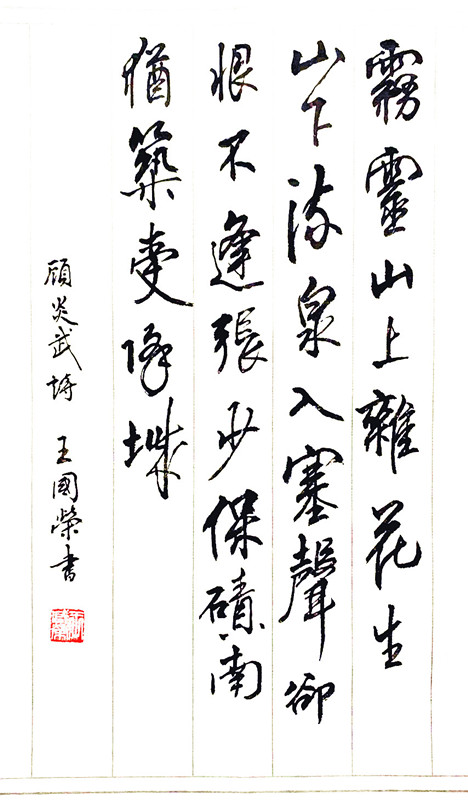 霧靈山上雜花生
山下流泉入塞聲卻
恨不逢張少保磧南
猶築受降城
顧炎武詩 王國榮書